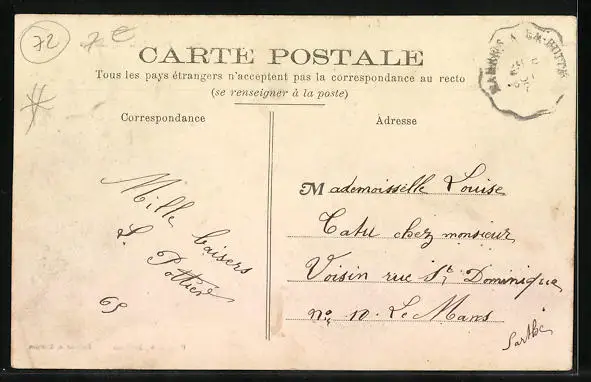 72
7€
CARTE POSTALE
Tous les pays étrangers n'acceptent pas la correspondance au recto
(se renseigner à la poste)
Correspondance
Adresse
Mille baisers
L. Pottier
69
Mademoiselle Louise
Catu chez monsieur
Voisin rue St Dominique
no 10. Le Mans
Sarthe